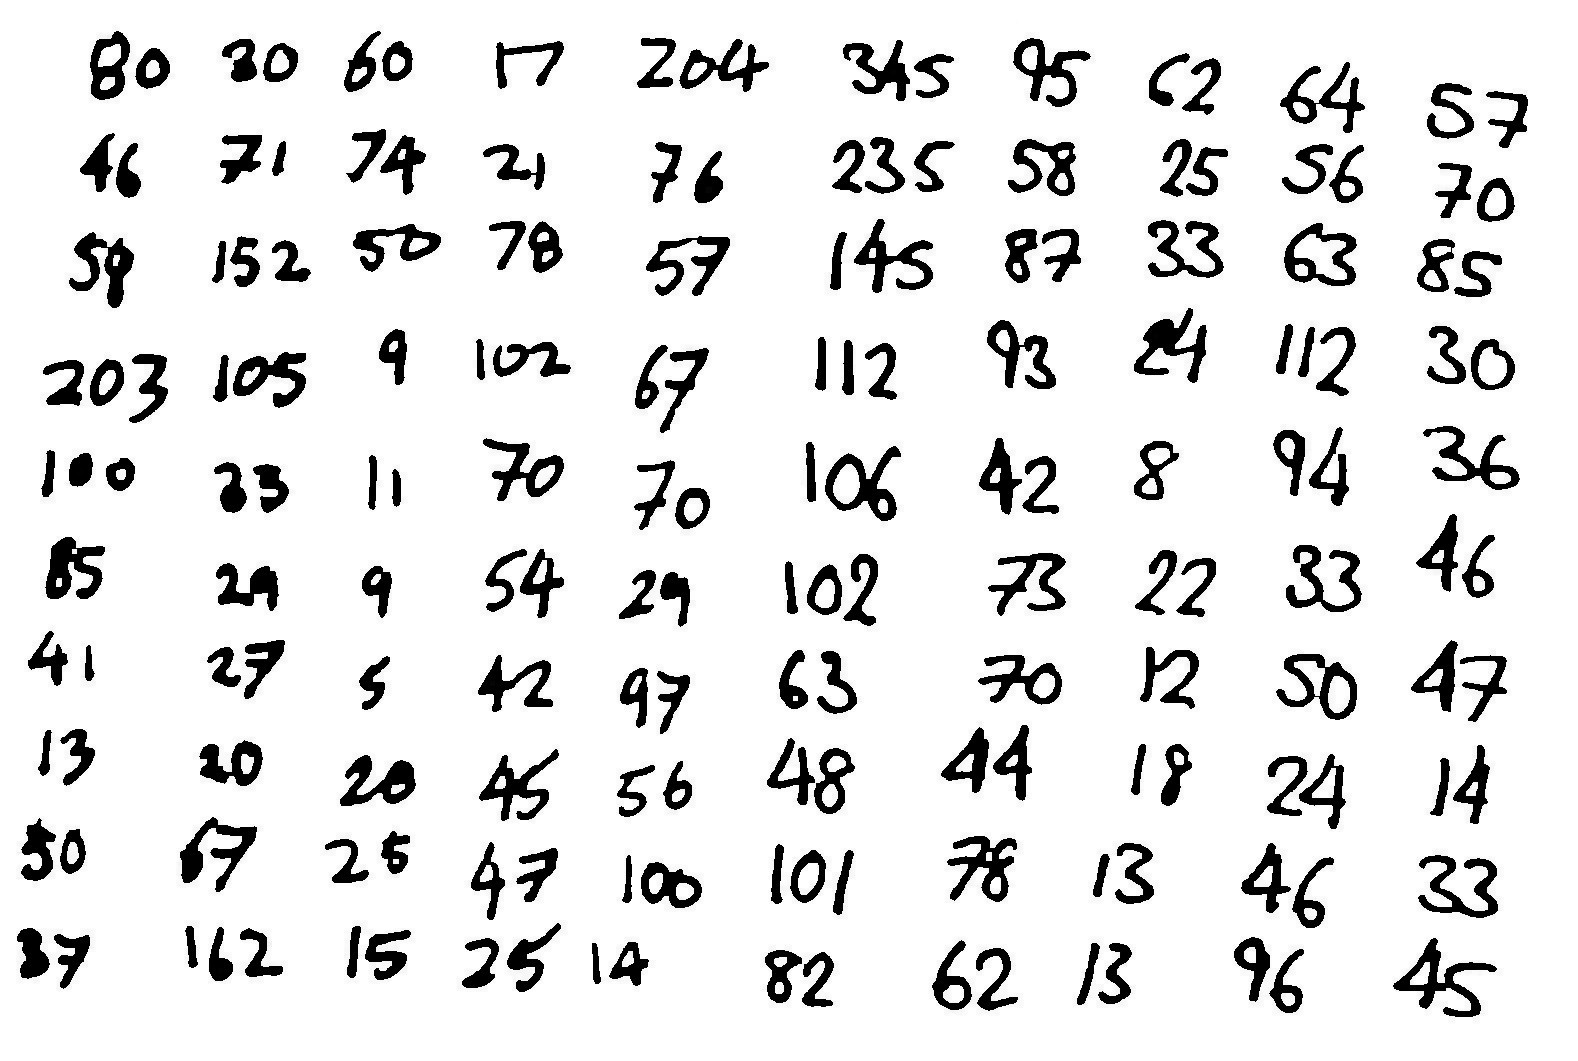 80 30 60 17 204 345 95 62 64 57
46 71 74 21 76 235 58 25 56 70
59 152 50 78 57 145 87 33 63 85
203 105 9 102 67 112 93 24 112 30
100 33 11 70 70 106 42 8 94 36
85 29 9 54 29 102 73 22 33 46
41 27 5 42 97 63 70 12 50 47
13 20 20 45 56 48 44 18 24 14
50 67 25 47 100 101 78 13 46 33
37 162 15 25 14 82 62 13 96 45